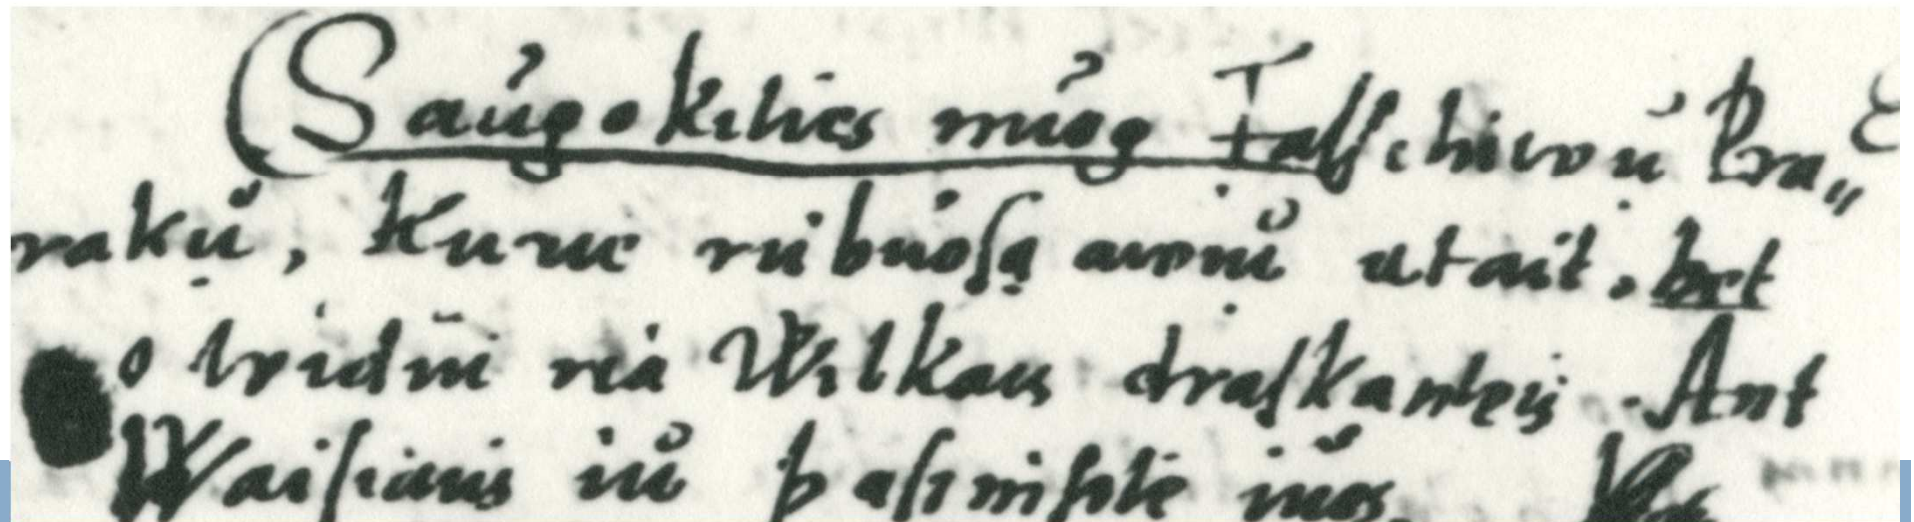 Saugokities nůg Falschiwū Pra„
rakų̃, Kurie rūbůsą awiů ateit. bet
o widui ira Wilkais draskanteis. Ant
Waisiaus iů pasinsite iůs.